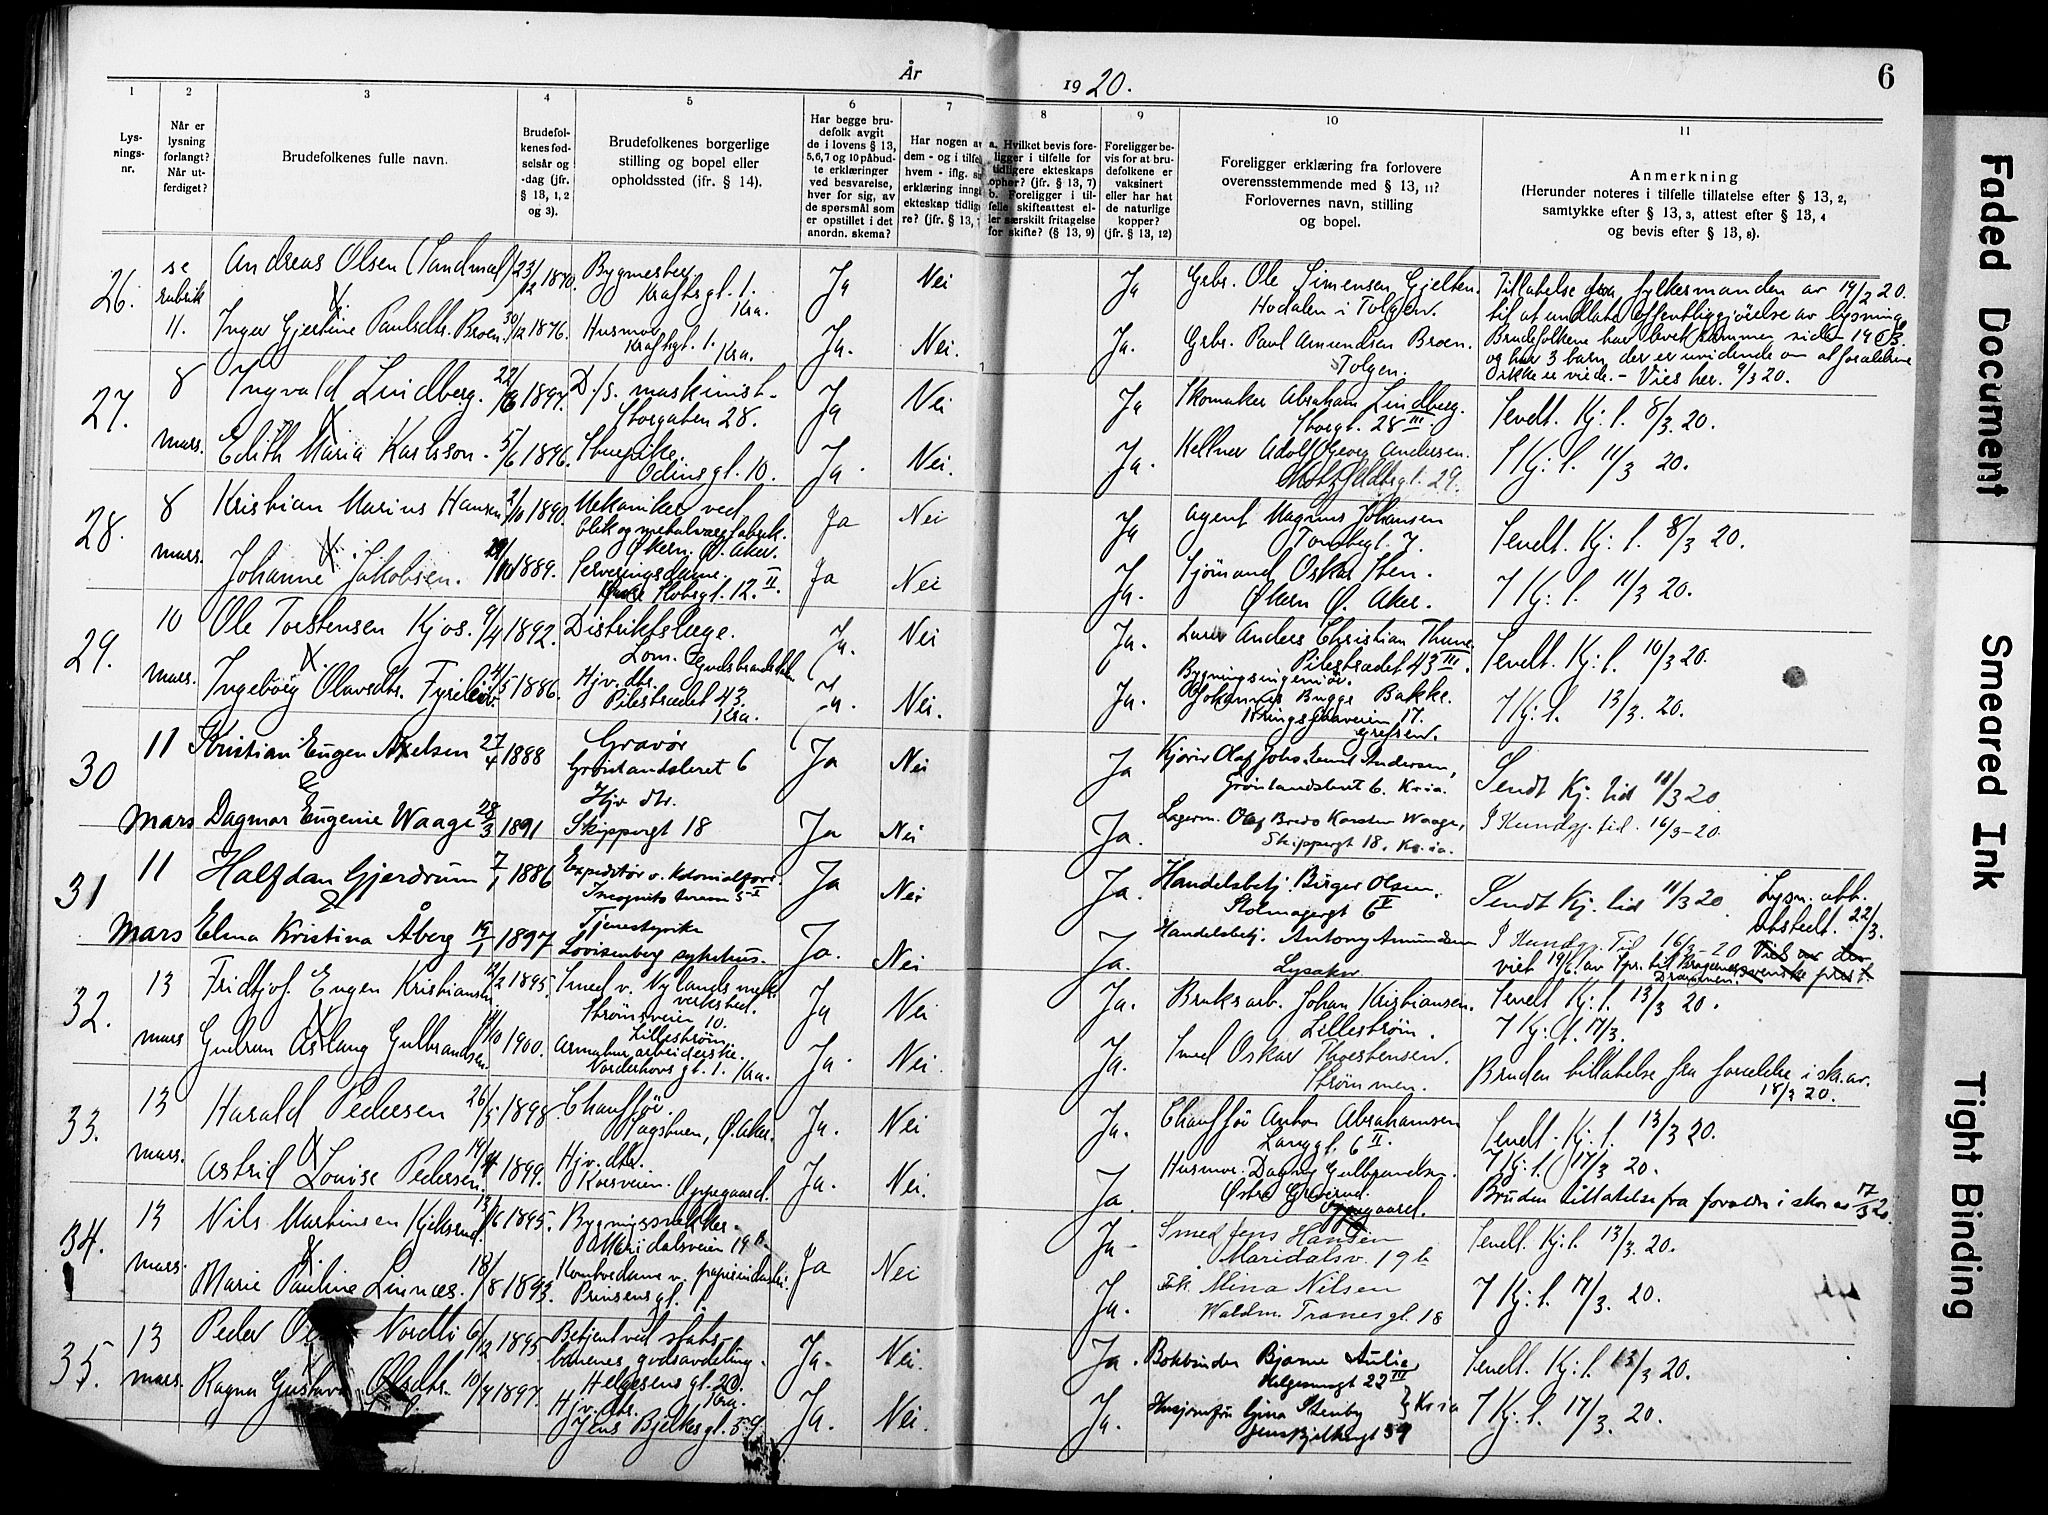 År 1920.
6
1 2 3 4 5 6 7 8 9 10 11
Lys-
nings-
nr.
Når er
lysning
forlangt?
Når ut-
ferdiget?
Brudefolkenes fulle navn.
Brudefol-
kenes fød-
selsår og
-dag (jfr.
§ 13, 1, 2
og 3).
Brudefolkenes borgerlige
stilling og bopel eller
opholdssted (jfr. § 14).
Har begge bru-
defolk avgit
de i lovens § 13,
5,6,7 og 10 påbud-
te erklæringer
ved besvarelse,
hver for sig, av
de spørsmål som
er opstillet i det
anordn. skema?
Har nogen av
dem - og i tilfe
hvem - iflg. s
erklæring inng
ekteskap tidlig
re? (jfr. § 13,
a. Hvilket bevis fore-
ligger i tilfelle for
tidligere ekteskaps
ophør? (jfr. § 13, 7)
b. Foreligger i til-
felle skifteattest el-
ler særskilt fritagelse
for skifte? (§ 13, 9)
Foreligger be-
vis for at bru-
defolkene er
vaksinert
eller har hat
de naturlige
kopper?
(jfr. § 13, 12)
Foreligger erklæring fra forlovere
overensstemmende med § 13, 11?
Forlovernes navn, stilling
og bopel.
Anmerkning
(Herunder noteres i tilfelle tillatelse efter § 13, 2,
samtykke efter § 13, 3, attest efter § 13, 4
og bevis efter § 13, 8).
26. se rubrik 11. Andreas Olsen (Sandmæl) 23/12 1870. Bygmester Kraftsgt. 1. Kra. Ja Nei Ja Grbr. Ole Simensen Gjelten. Hodalen i Tolgen.
Tillatelse fra fylkesmanden av 19/2 20.
til at undlate offentliggjørelse av lysning
Inger Gjertine Paulsdtr. Broen 30/12 1876. Husmor Kraftsgt. 1. Kra. Ja. Nei. Ja. Grbr. Paul Amundsen Broen. Tolgen.
Brudefolkene har levet sammen siden
og har 3 barn, der er uvidende om at forældrene
ikke er viede. - Vies her. 9/3 20.
27. 8 mars. Ingvald Lindberg. 22/6 1897. D./s. maskinist. Storgaten 28. Ja Nei Ja Skomaker Abraham Lindberg. Storgt. 28 III. Sendt. Kj. t. 8/3. 20.
Edith Maria Karlsson. 5/6 1896. Stuepike. Odinsgt. 10. Ja. Nei. Ja. Kellner Adolf Georg Andersen. Motzfeldtsgt. 29. I Kj. t. 11/3 20.
28. 8 mars. Kristian Marius Hansen 2/10 1890. Mekaniker ved blik og metalvarefabrik. Økern. Ø. Aker. Ja Nei Ja Agent Magnus Johansen Tomtegt. 7. Sendt. Kj. t. 8/3 20.
Johanne Jakobsen. 1889. Serveringsdame. Slotsgt. 12. II. Ja Nei Ja. Sjömand Oskar Sten. Økern Ø. Aker. I Kj. t. 11/3 20.
29. 10 mars. Ole Torstensen Kjos. 9/4 1892. Distriktslæge. Lom. Gudbrandsdalen Ja. Nei Ja. Anders Christian Thune Pilestrædet 43 III. Sendt. Kj. t. 10/3 20.
Ingebörg Olavsdtr. 5 1886. Hjv. dtr. Pilestrædet 43. Kra. Ja. Nei. Ja. Bygningsingeniör. Johannes Bugge Bakke. Kringsjaaveien 17. Grefsen. I Kj. t. 13/3. 20.
30 11 mars Kristian Eugen Axelsen 27/4 1888 Gravör Grönlandsleret 6 Ja Nei Ja Olaf Johs. Andersen, Grönlandsleret 6. Kr.ia. Sendt Kj. tid 11/3 20
&
Dagmar Eugenie Waage 28/3 1891 Hjv dtr. Skippergt 18 Ja Nei Ja. Lagerm. Olaf Bredo Karsten Waage, Skippergt 18. Kr.ia. I Kundgj. tid. 16/3-20.
31 11 mars Halfdan Gjerdrum 7/1 1886 Expeditör v. kolonialforr. Incognito terrasse 5 Ja Nei Ja. Handelsbetj. Birger Olsen. Stolmagergt 6 V Sendt Kj. tid 11/3 20. Lysn. att. utstedt. 22/3.
&
Elma Kristina Åberg 19/1 1897 Tjenestepike Lovisenberg sykehus. Ja. Nei Ja. Handelsbetj. Antony Amundsen Lysaker I Kundgj. Tid 16/3-20
viet 19/6. av Spr. til Bragernes, Drammen.
32. 13 mars Fridtjof. Eugen Kristiansen 12/2 1895. Smed v. Nylands mek verksted. Strömsveien 10. Lilleström Ja Nei Ja. Bruksarb. Johan Kristiansen. Lilleström. Sendt Kj. t. 13/3 20.
Gudrun Aslaug Gulbrandsen 1900. Armaturarbeiderske. Norderhovsgt. 1. Kra. Ja. Nei. Ja. Smed Oskar Thorstensen. Strömmen. I Kj. t. 17/3.
Bruden tillatelse fra forældre i skr. av. 18/3 20.
33. 13 mars. Harald Pedersen 26/5 1898 Chauffør. Ø. Aker. Ja. Nei Ja. Chaufför Anton Abrahamsen Langgt. 6 II. Sendt. Kj. t. 13/3 20.
Astrid Louise Pedersen. 1899. Hjv. dtr. Oppegaard. Ja. Nei. Ja. Husmor. Dagny Gulbrandsen. Østre Greverud Oppegaard. I Kj. t. 17/3 20.
Bruden tillatelse fra forældre i skr. av 17/3 20.
34. 13 mars. Nils Martinsen 1895. Bygningssnekker. Maridalsveien 19 b. Ja Nei Ja- Smed Jens Hansen Maridalsv. 19 b Sendt. Kj. t. 13/3. 20.
Marie Pauline Linnæs. 18/8 1893. Kontordame v. papirindustri. Prinsensgt. Ja. Frk. Mina Nilsen Waldm. Tranesgt. 18 I Kj. t. 17/3. 20.
35. 13 mars. Peder Nordli 6/12 1895. Betjent ved stats- banenes godsavdeling. Helgesensgt. 22. Kra. Ja. Nei. Ja. Bokbinder Bjarne Aulie, Helgesensgt 22 III Sendt. Kj. t. 13/3 20.
Ragna Gustava Olsdtr. 10/4 1897. Hjv. dtr. Jens Bjelkesgt. 59 Ja. Nei. Ja. Gina Stenby Jens Bjelkesgt 59 } Kr.ia I Kj. t. 17/3. 20.
Faded Document
Smeared Ink
Tight Binding